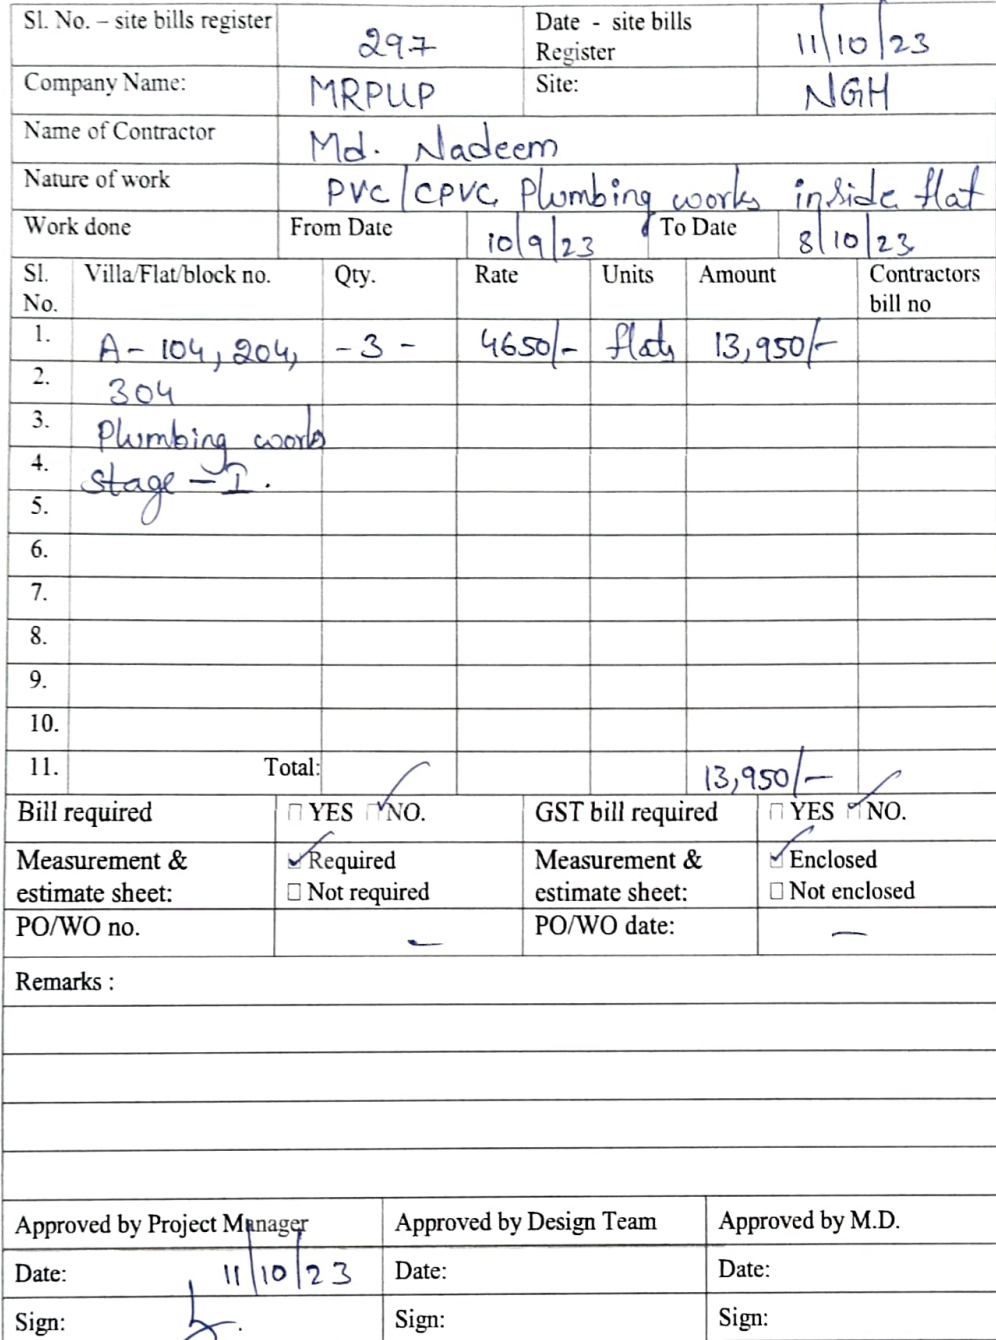 Sl. No. – site bills register 297 Date - site bills Register 11/10/23
Company Name: MRPUP Site: NGH
Name of Contractor Md. Nadeem
Nature of work PVC/CPVC Plumbing works inside flat
Work done From Date 10/9/23 To Date 8/10/23
Sl. No. Villa/Flat/block no. Qty. Rate Units Amount Contractors bill no
1. A- 104, 204, -3- 4650/- flats 13,950/-
2. 304
3. Plumbing works
4. Stage - I.
5.
6.
7.
8.
9.
10.
11. Total: 13,950/-
Bill required YES NO. GST bill required YES NO.
Measurement & estimate sheet: Required Not required Measurement & estimate sheet: Enclosed Not enclosed
PO/WO no. - PO/WO date: -
Remarks :
Approved by Project Manager Approved by Design Team Approved by M.D.
Date: 11/10/23 Date: Date:
Sign: Sign: Sign: